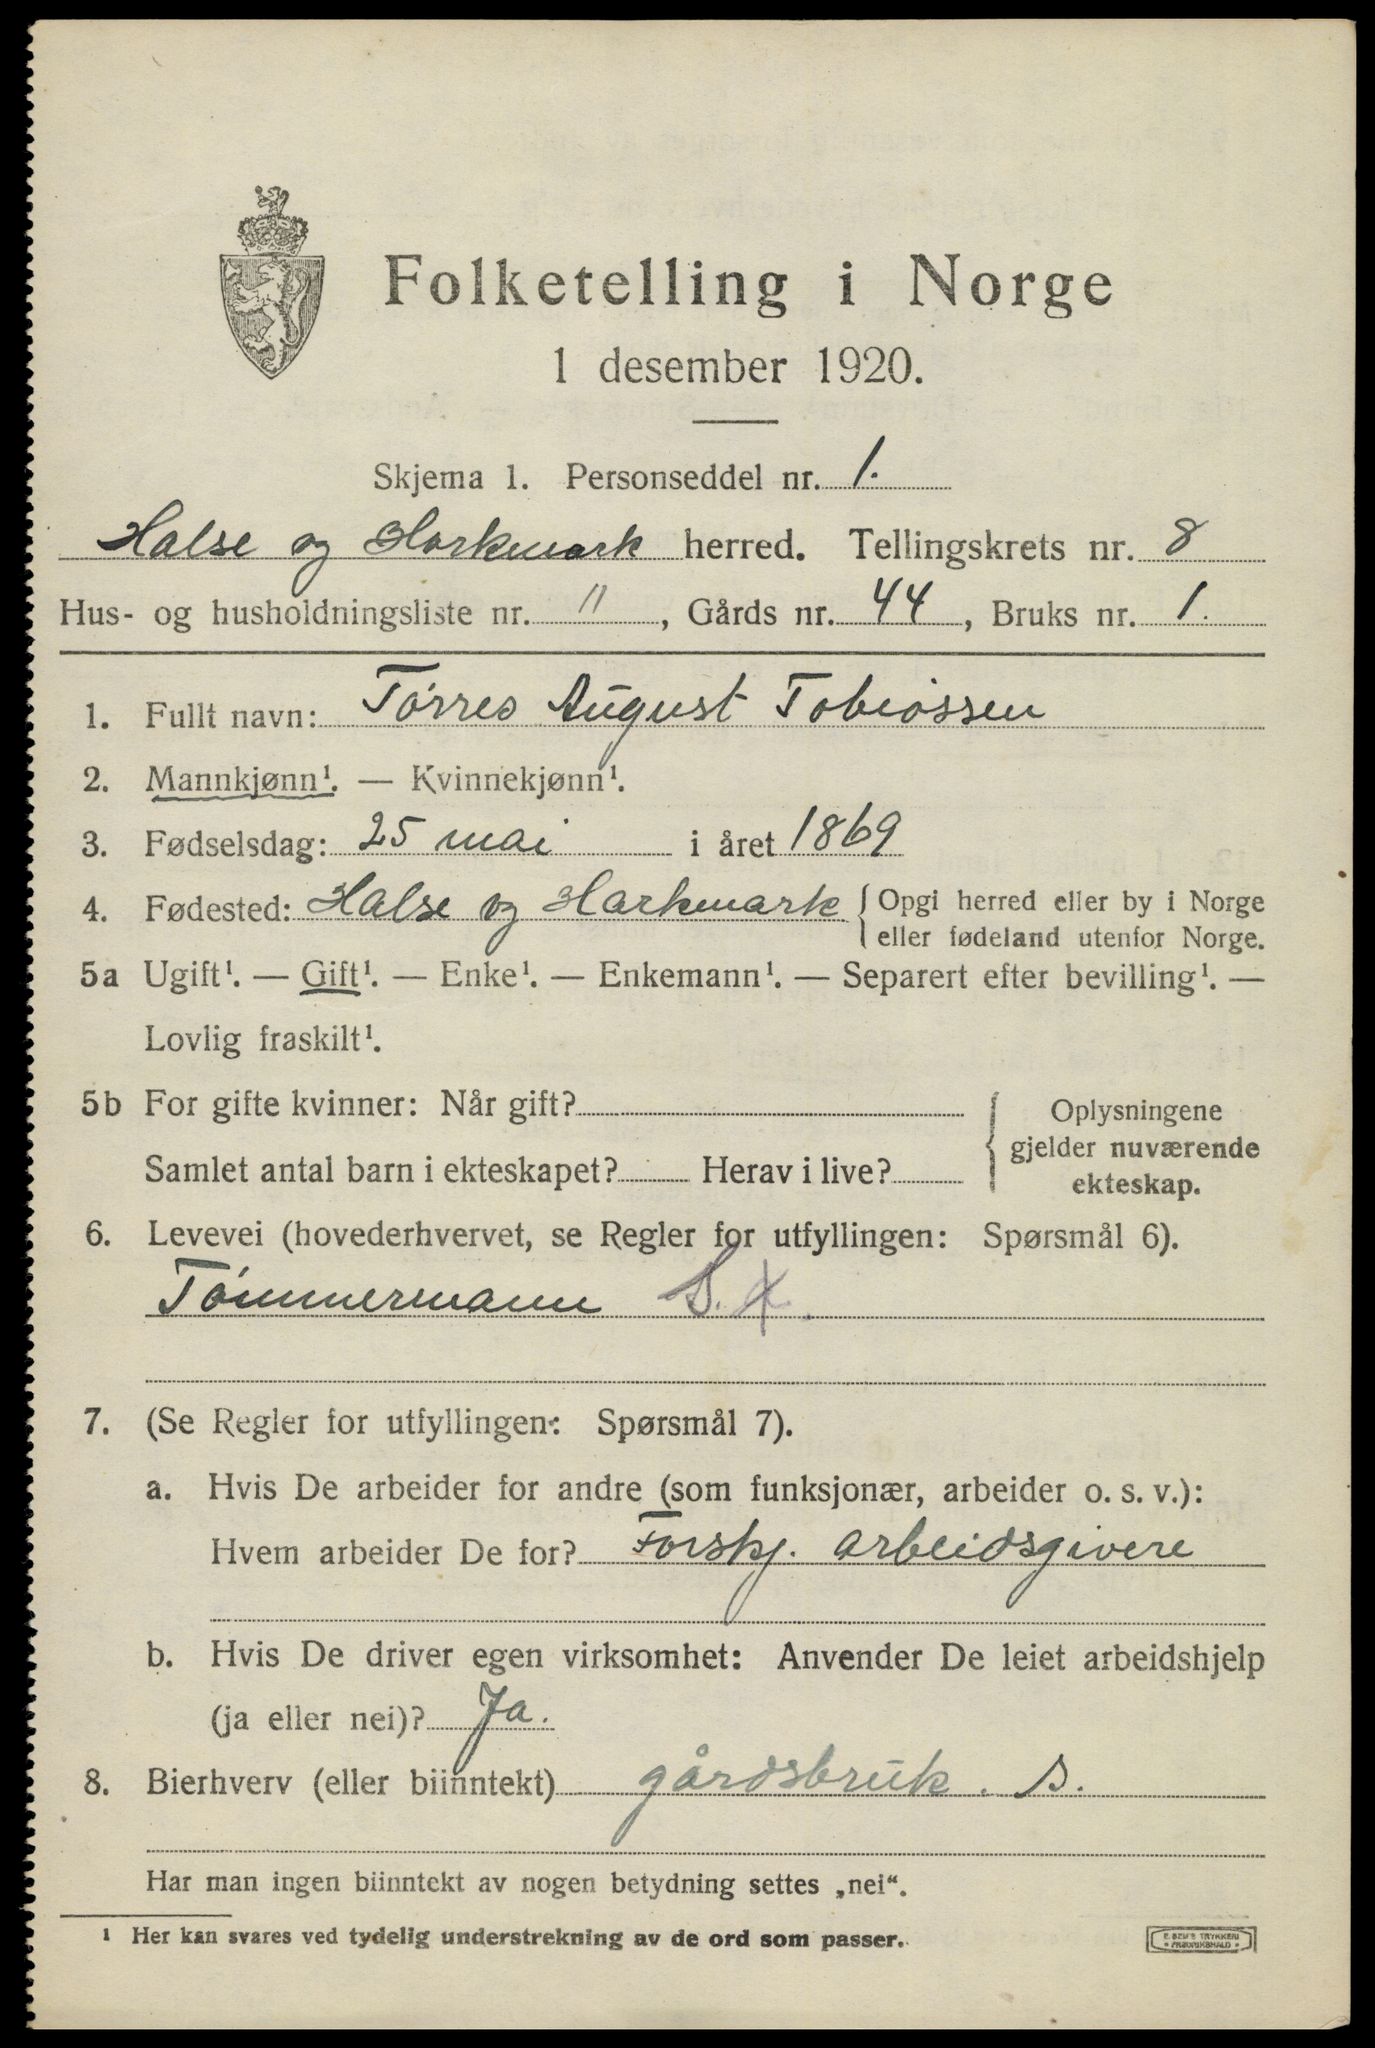 Folketelling i Norge
1 desember 1920.
Skjema 1. Personseddel nr. 1.
Halse og Harkmark herred. Tellingskrets nr. 8
Hus- og husholdningsliste nr. 11, Gårds nr. 44, Bruks nr. 1.
1. Fullt navn: Tórres August Tobiassen
2. Mannkjønn¹. — Kvinnekjønn¹.
3. Fødselsdag: 25 mai i året 1869
4. Fødested: Halse og Harkmark { Opgi herred eller by i Norge
eller fødeland utenfor Norge.
5a Ugift¹. — Gift¹. — Enke¹. — Enkemann¹. — Separert efter bevilling¹. —
Lovlig fraskilt¹.
5b For gifte kvinner: Når gift?
Samlet antal barn i ekteskapet? Herav i live?
{ Oplysningene
gjelder nuværende
ekteskap.
6. Levevei (hovederhvervet, se Regler for utfyllingen: Spørsmål 6).
Tómmermann S. X.
7. (Se Regler for utfyllingen: Spørsmål 7).
a. Hvis De arbeider for andre (som funksjonær, arbeider o. s. v.):
Hvem arbeider De for? Forskj. arbeidsgivere
b. Hvis De driver egen virksomhet: Anvender De leiet arbeidshjelp
(ja eller nei)? Ja.
8. Bierhverv (eller biinntekt) gårdsbruk. s.
Har man ingen biinntekt av nogen betydning settes „nei“.
¹ Her kan svares ved tydelig understrekning av de ord som passer.
E. SEM'S TRYKKERI
FREDRIKSHALD